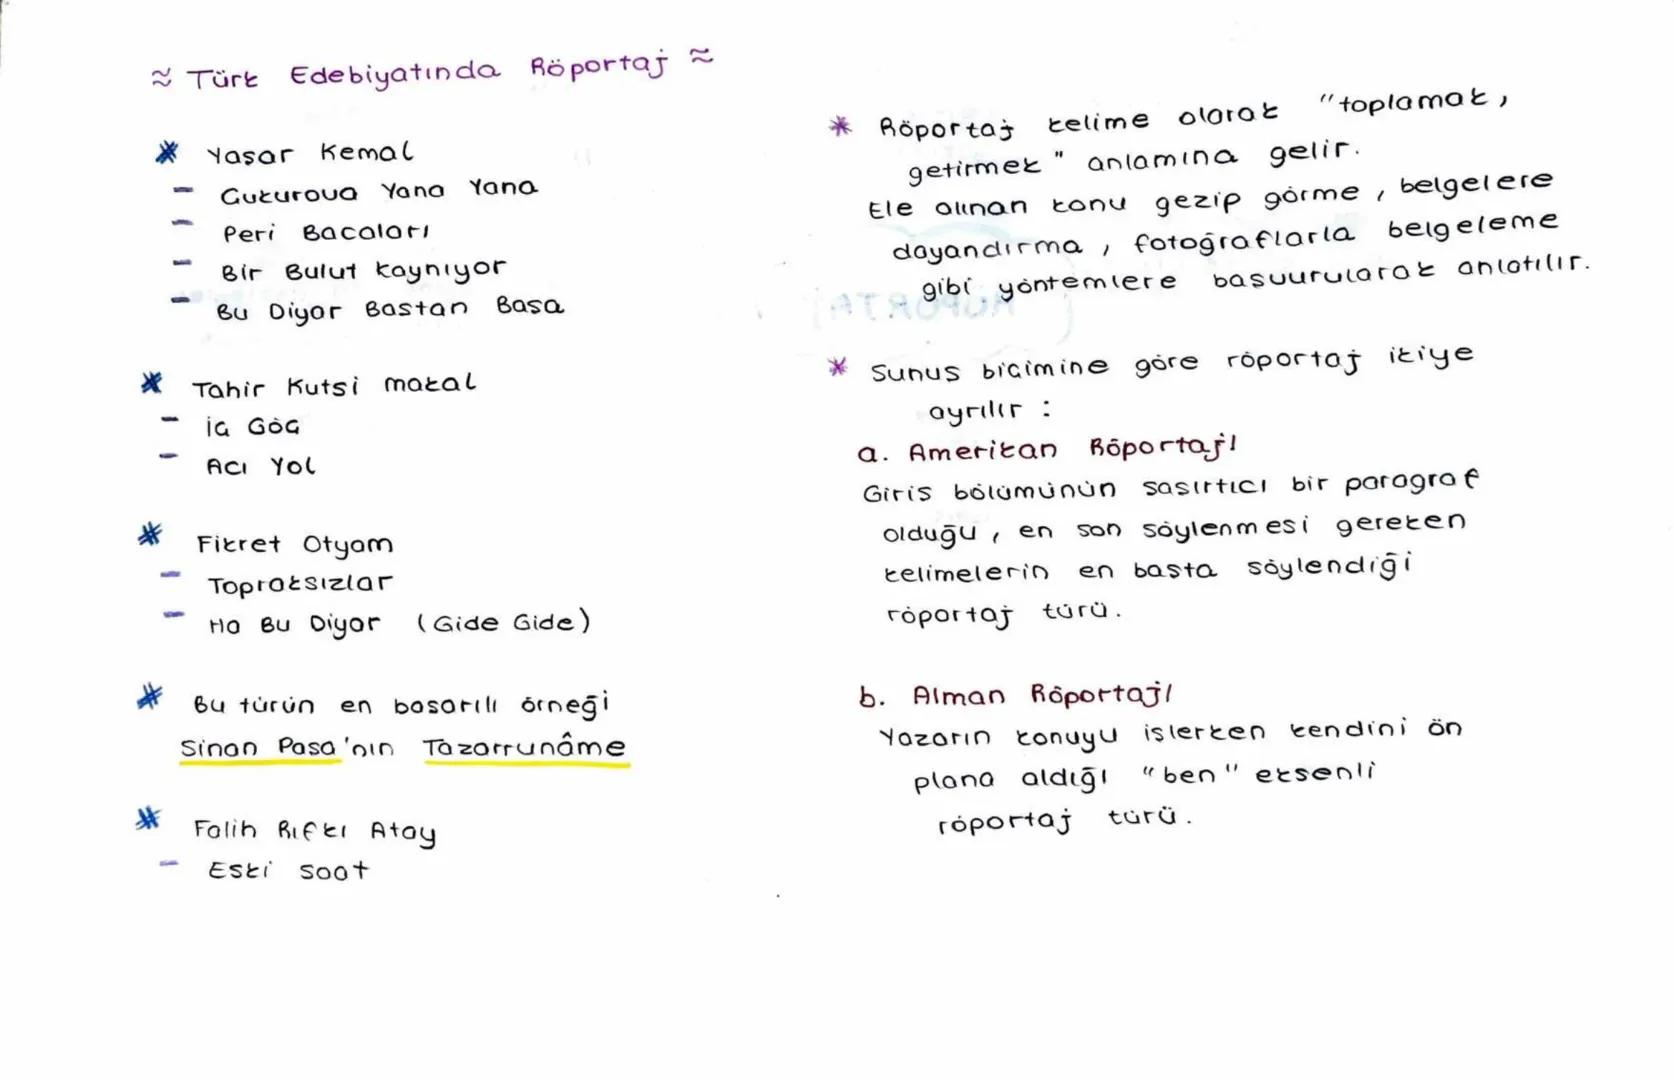 ≈ Türk Edebiyatında Röportaj ≈
* Yaşar Kemal
- Çukurova Yana Yana
- Peri Bacaları
- Bir Bulut Kaynıyor
- Bu Diyar Bastan Basa
* Tahir Kutsi Makal
- İç Göç
- Acı Yol
* Fikret Otyam
- Topraksızlar
- Ha Bu Diyar (Gide Gide)
* Bu türün en başarılı örneği
Sinan Paşa'nın Tazarrunâme
* Falih Rıfkı Atay
- Eski Saat
* Röportaj kelime olarak "toplamak,
getirmek" anlamına gelir.
Ele alınan konu gezip görme, belgelere
dayandırma, fotoğraflarla belgeleme
gibi yöntemlere başvurularak anlatılır.
* Sunuş biçimine göre röportaj ikiye
ayrılır :
a. Amerikan Röportajı
Giriş bölümünün şaşırtıcı bir paragraf
olduğu, en son söylenmesi gereken
kelimelerin en başta söylendiği
röportaj türü.
b. Alman Röportajı
Yazarın konuyu işlerken kendini ön
plana aldığı "ben" eksenli
röportaj türü.